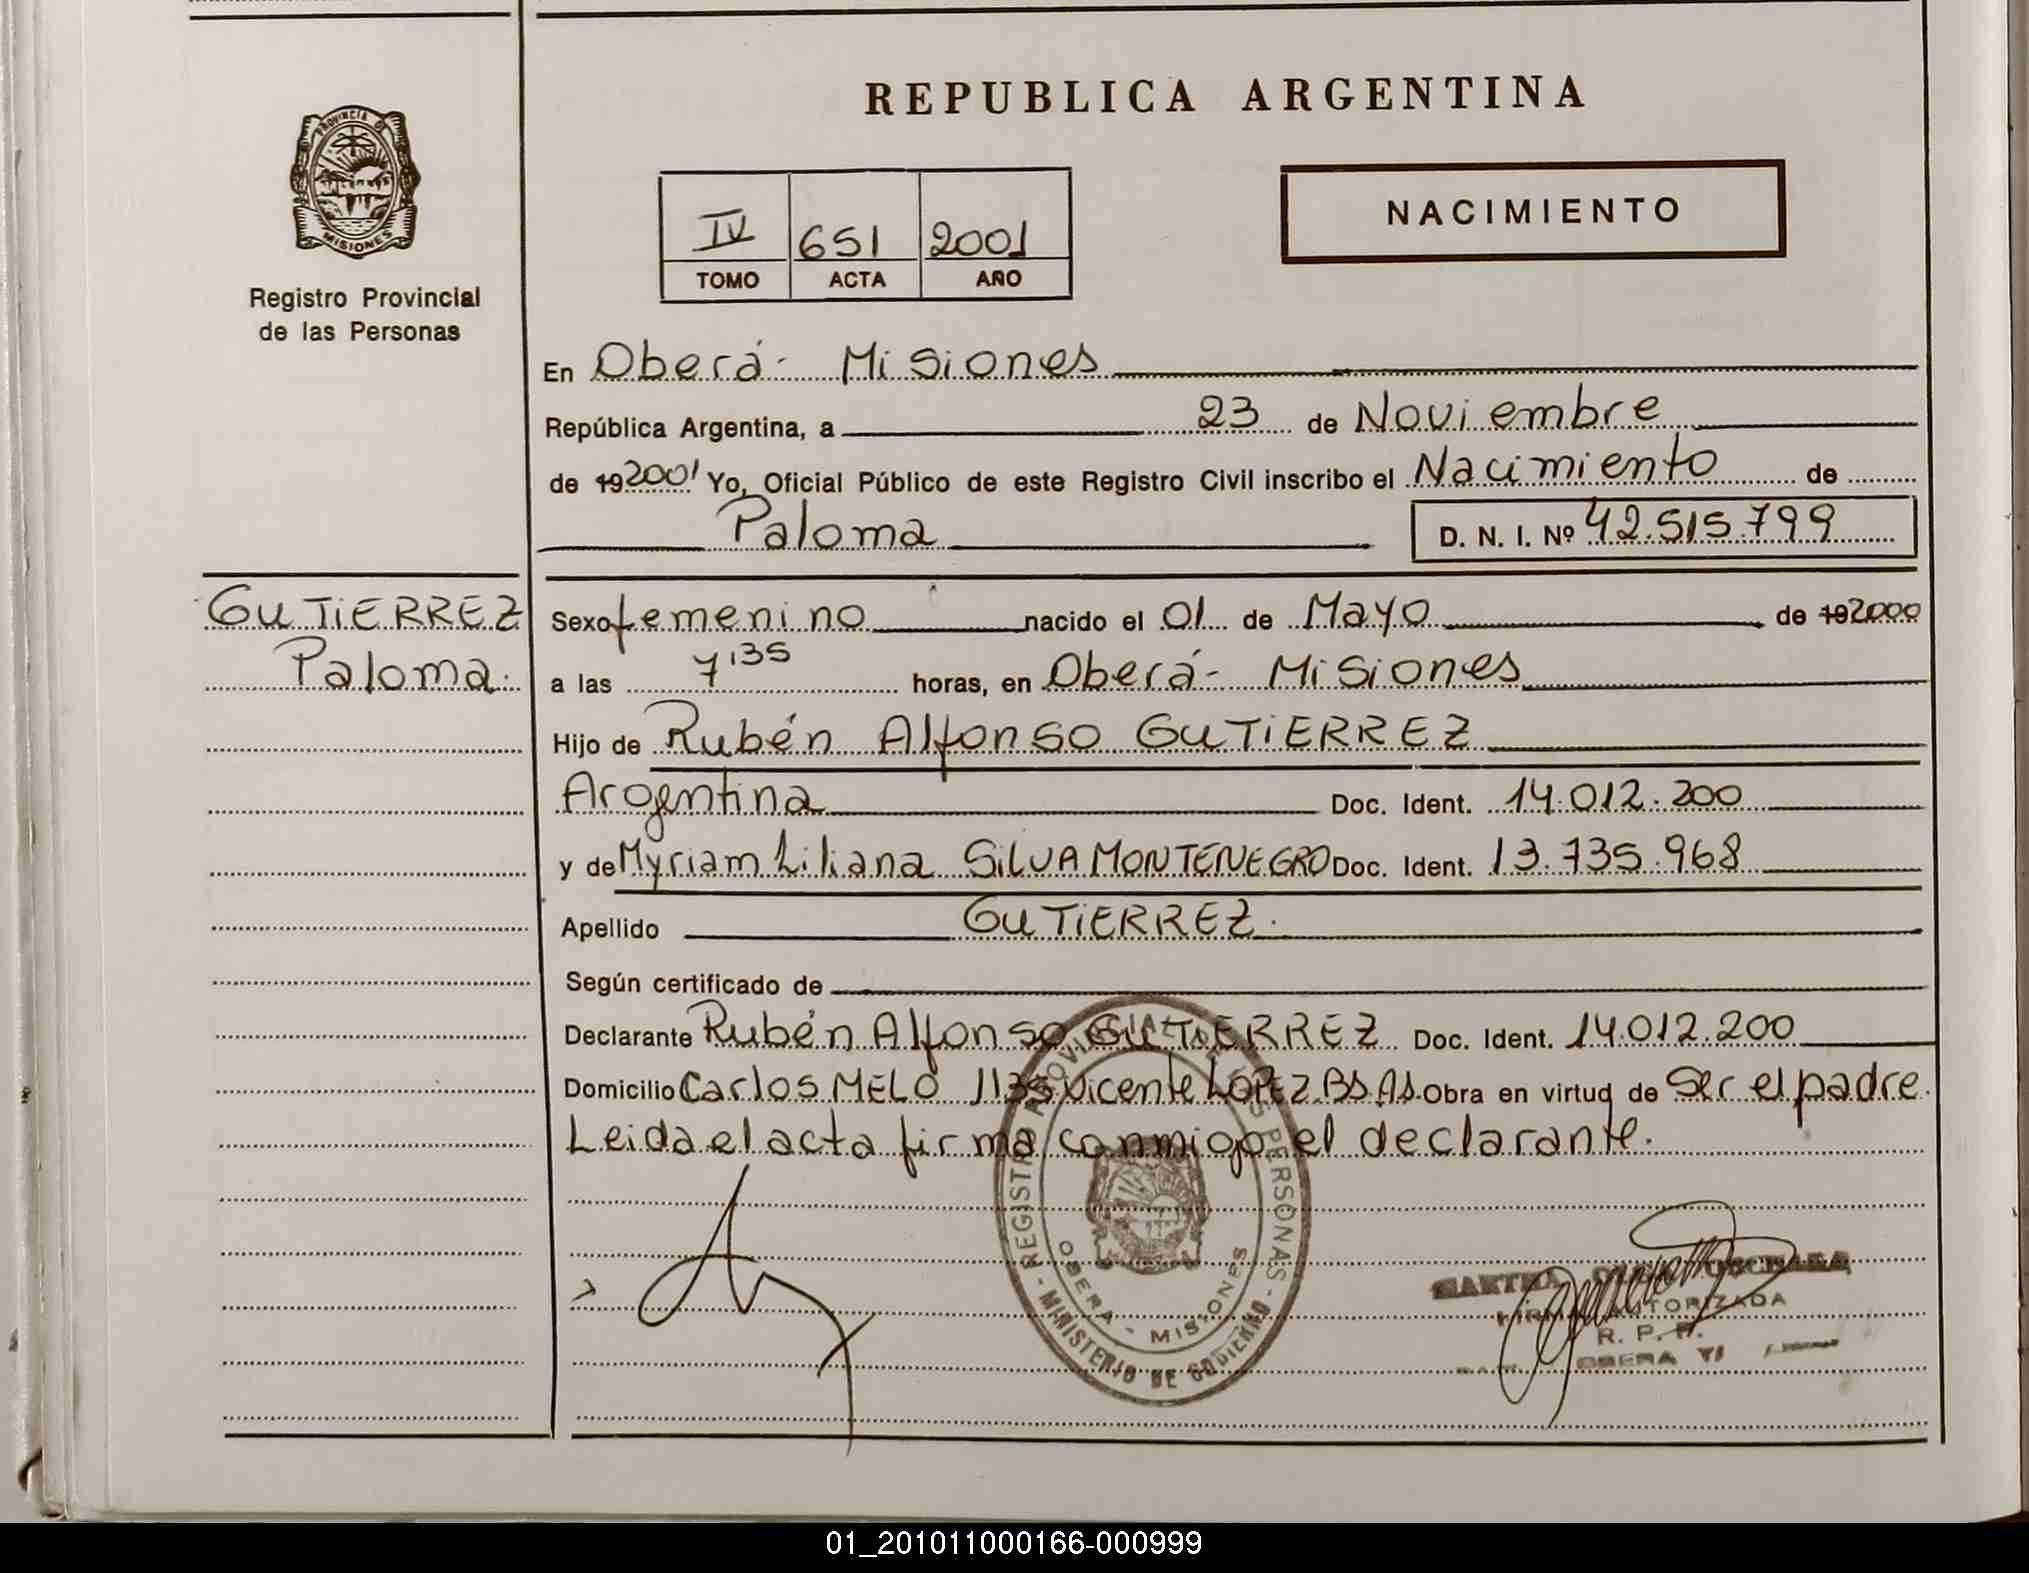 REPUBLICA ARGENTINA
PROVINCIA DE
MISIONES
Registro Provincial
de las Personas
IV 651 2001
TOMO ACTA AÑO
NACIMIENTO
En Oberá- Misiones
República Argentina, a 23 de Noviembre
de 19 2001 Yo, Oficial Público de este Registro Civil inscribo el Nacimiento de
Paloma D. N. I. Nº 42.515.799
GUTIERREZ
Paloma.
Sexo femenino nacido el 01 de Mayo de 19 2000
a las 7:35 horas, en Oberá- Misiones
Hijo de Rubén Alfonso GUTIERREZ
Argentina Doc. Ident. 14.012.200
y de Myriam Liliana SILVA MONTENEGRO Doc. Ident. 13.735.968
Apellido GUTIERREZ.
Según certificado de
Declarante Rubén Alfonso GUTIERREZ Doc. Ident. 14.012.200
Domicilio Carlos MELO 1135 Vicente LOPEZ BS AS. Obra en virtud de Ser el padre.
Leida el acta firma conmigo el declarante.
REGISTRO PROVINCIAL DE LAS PERSONAS
OBERA - MISIONES
MINISTERIO DE GOBIERNO
MARTHA
FIRMA AUTORIZADA
R. P. P.
OBERA
01_201011000166-000999